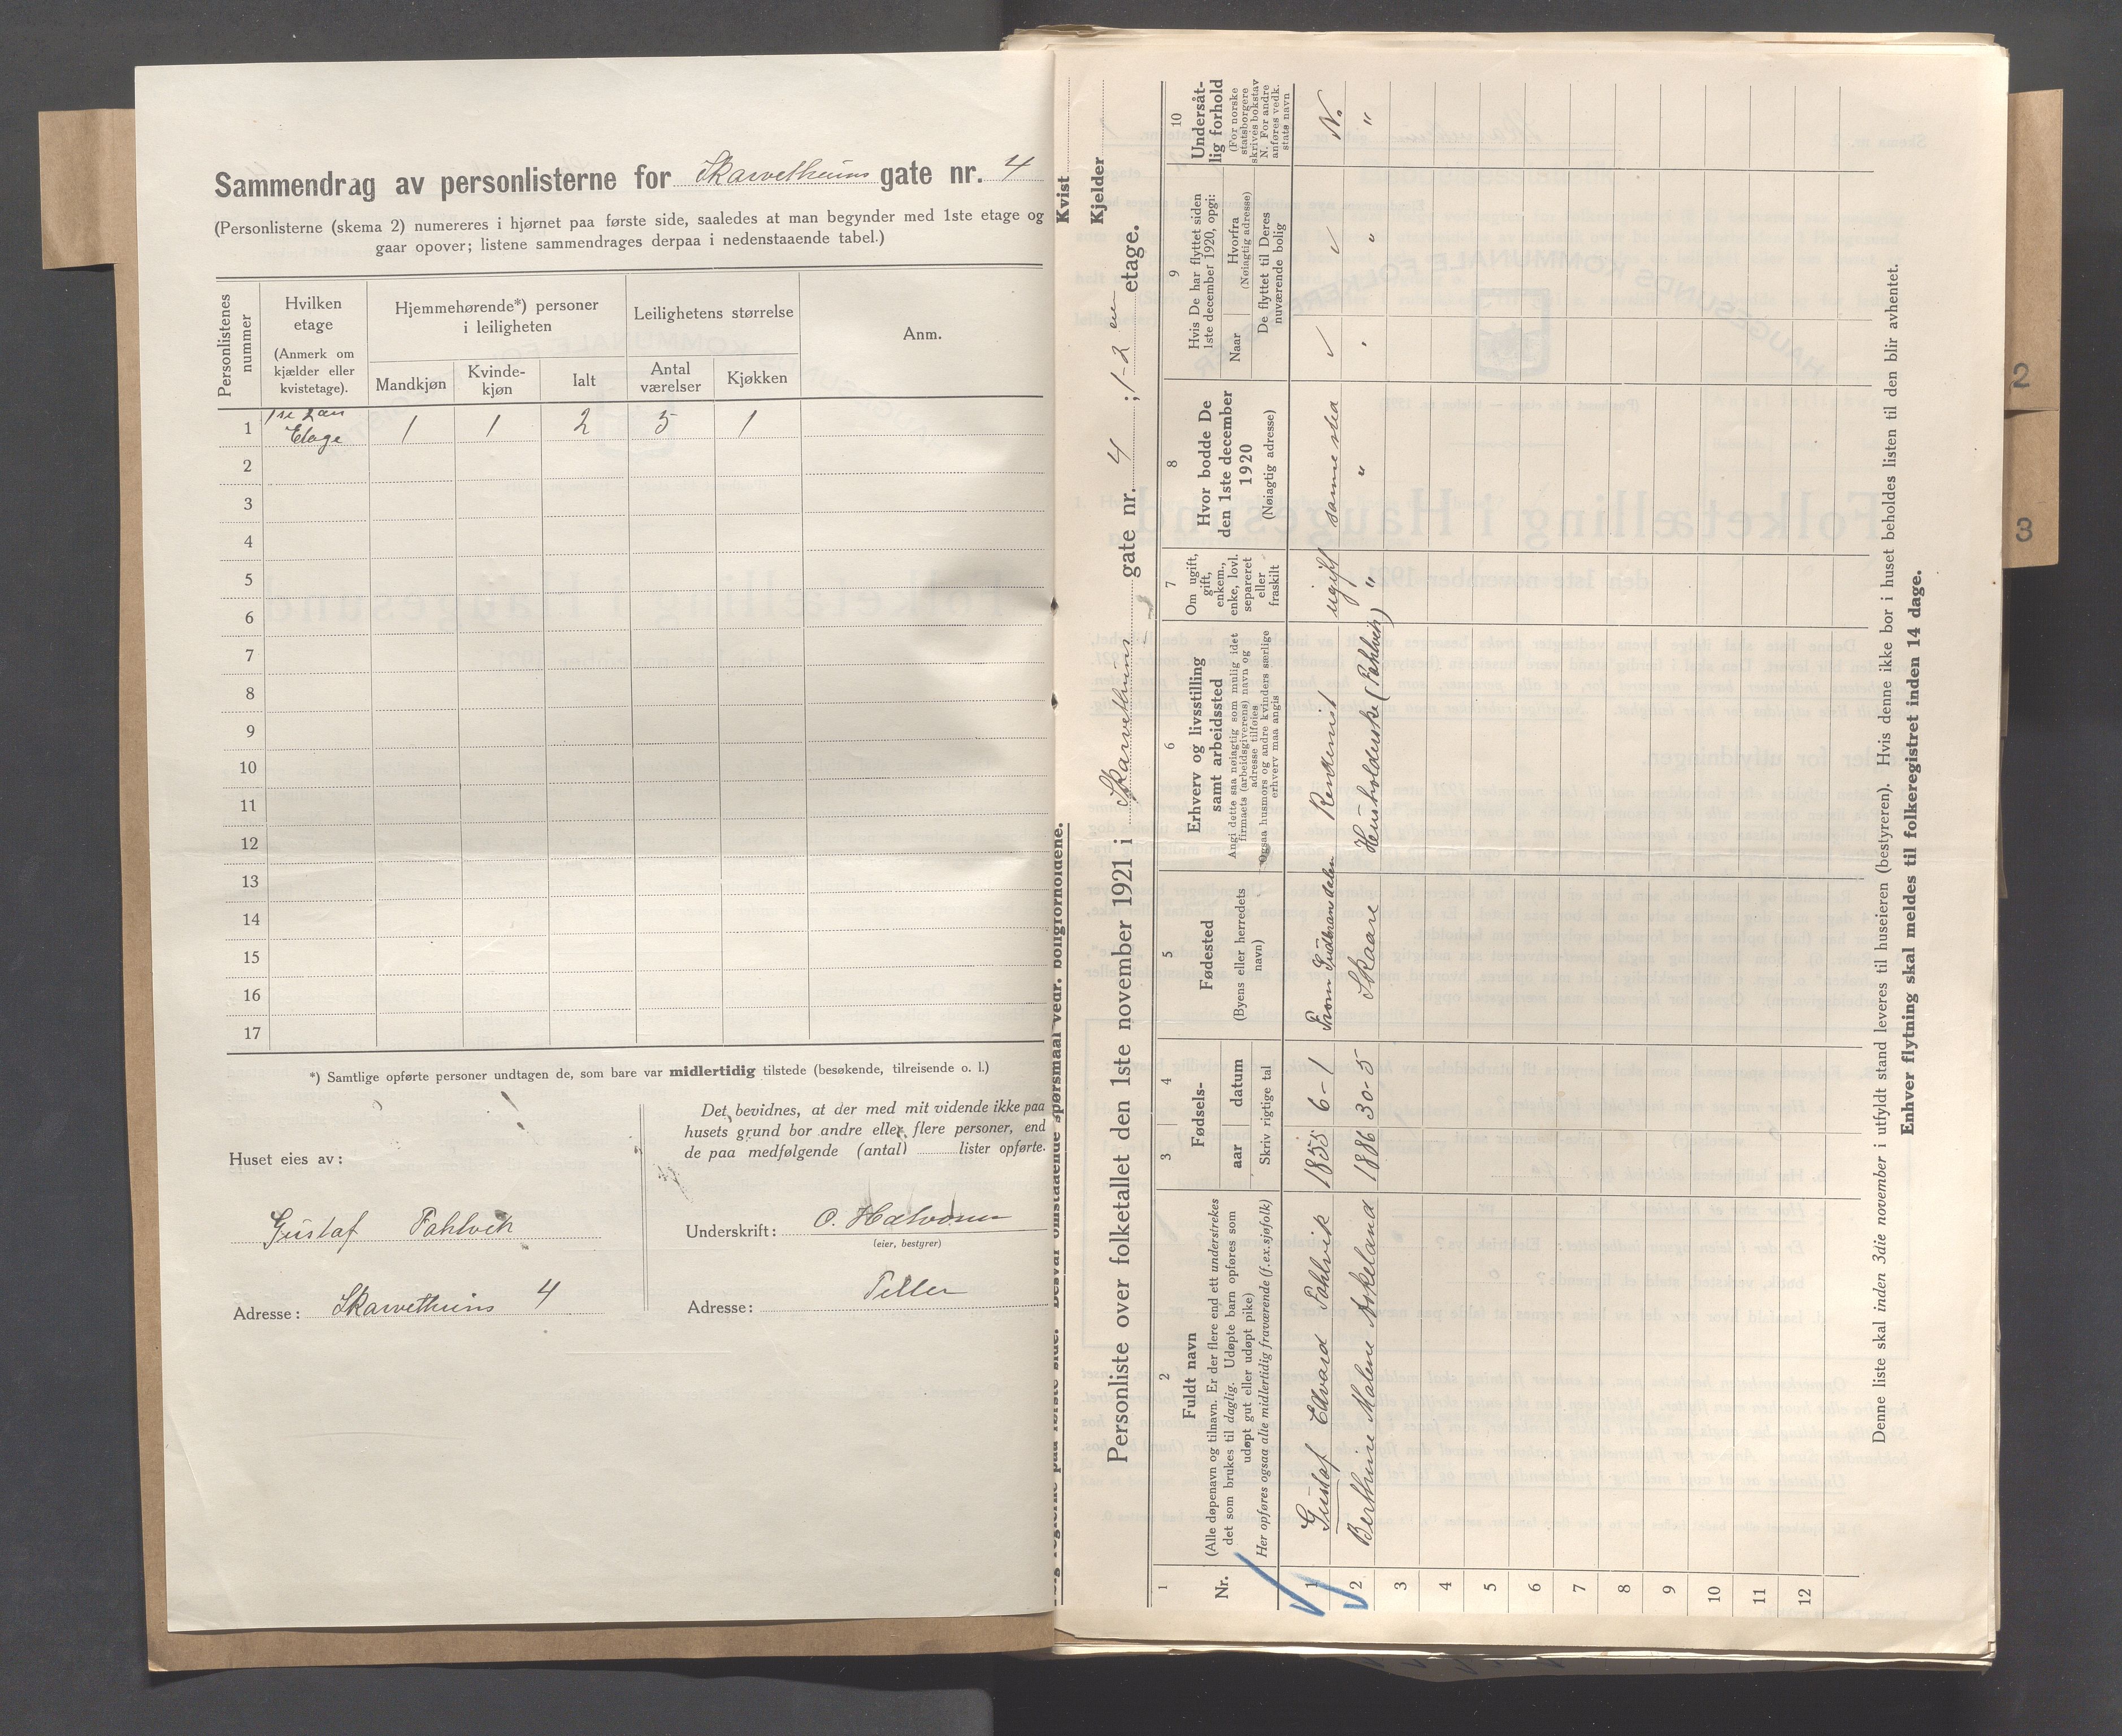 Sammendrag av personlisterne for Skarvethuins gate nr. 4
(Personlisterne (skema 2) numereres i hjørnet paa første side, saaledes at man begynder med 1ste etage og
gaar opover; listene sammendrages derpaa i nedenstaaende tabel.)
Personlistenes nummer
Hvilken etage
(Anmerk om kjælder eller kvistetage).
Hjemmehørende*) personer i leiligheten
Mandkjøn
Kvindekjøn
Ialt
Leilighetens størrelse
Antal værelser
Kjøkken
Anm.
1 Etage 1 1 2 5 1
2
3
4
5
6
7
8
9
10
11
12
13
14
15
16
17
*) Samtlige opførte personer undtagen de, som bare var midlertidig tilstede (besøkende, tilreisende o. l.)
Huset eies av:
Gustaf Fahlvik
Adresse: Skarvethuins 4
Det bevidnes, at der med mit vidende ikke paa
husets grund bor andre eller flere personer, end
de paa medfølgende (antal) lister opførte.
Underskrift: O. Halvorsen
(eier, bestyrer)
Adresse:
Kvist
Kjelder
Personliste over folketallet den 1ste november 1921 i Skarvethuins gate nr. 4 ; 1-2 en etage.
1
Nr.
2
Fuldt navn
(Alle døpenavn og tilnavn. Er der flere end ett understrekes
det som brukes til daglig. Udøpte barn opføres som
udøpt gut eller udøpt pike)
Her opføres ogsaa alle midlertidig fraværende (f.ex.sjøfolk)
3 4
Fødsels-
aar datum
Skriv rigtige tal
5
Fødested
(Byens eller herredets navn)
6
Erhverv og livsstilling
samt arbeidssted
Angi dette saa nøiagtig som mulig idet
firmaets (arbeidsgiverens) navn og
adresse tilføies
Ogsaa husmors og andre kvinders særlige
erhverv maa angis
7
Om ugift,
gift,
enkem.,
enke, lovl.
separeret
eller
fraskilt
8
Hvor bodde De
den 1ste december
1920
(Nøiagtig adresse)
9
Hvis De har flyttet siden
1ste december 1920, opgi:
Naar
Hvorfra
(Nøiagtig adresse)
De flyttet til Deres
nuværende bolig
10
Undersåtlig forhold
(For norske
statsborgere
skrives bokstav
N. For andre
anføres vedk.
stats navn
1 Gustaf Edvard Fahlvik 1855 6-1 Rentenist ugift samme sted N.
2 Berthine Malene Askeland 1886 30-5 Skaare Husholderske (Fahlvik) " " " "
3
4
5
6
7
8
9
10
11
12
Denne liste skal inden 3die november i utfyldt stand leveres til huseieren (bestyreren). Hvis denne ikke bor i huset beholdes listen til den blir avhentet.
Enhver flytning skal meldes til folkeregistret inden 14 dage.
2
3